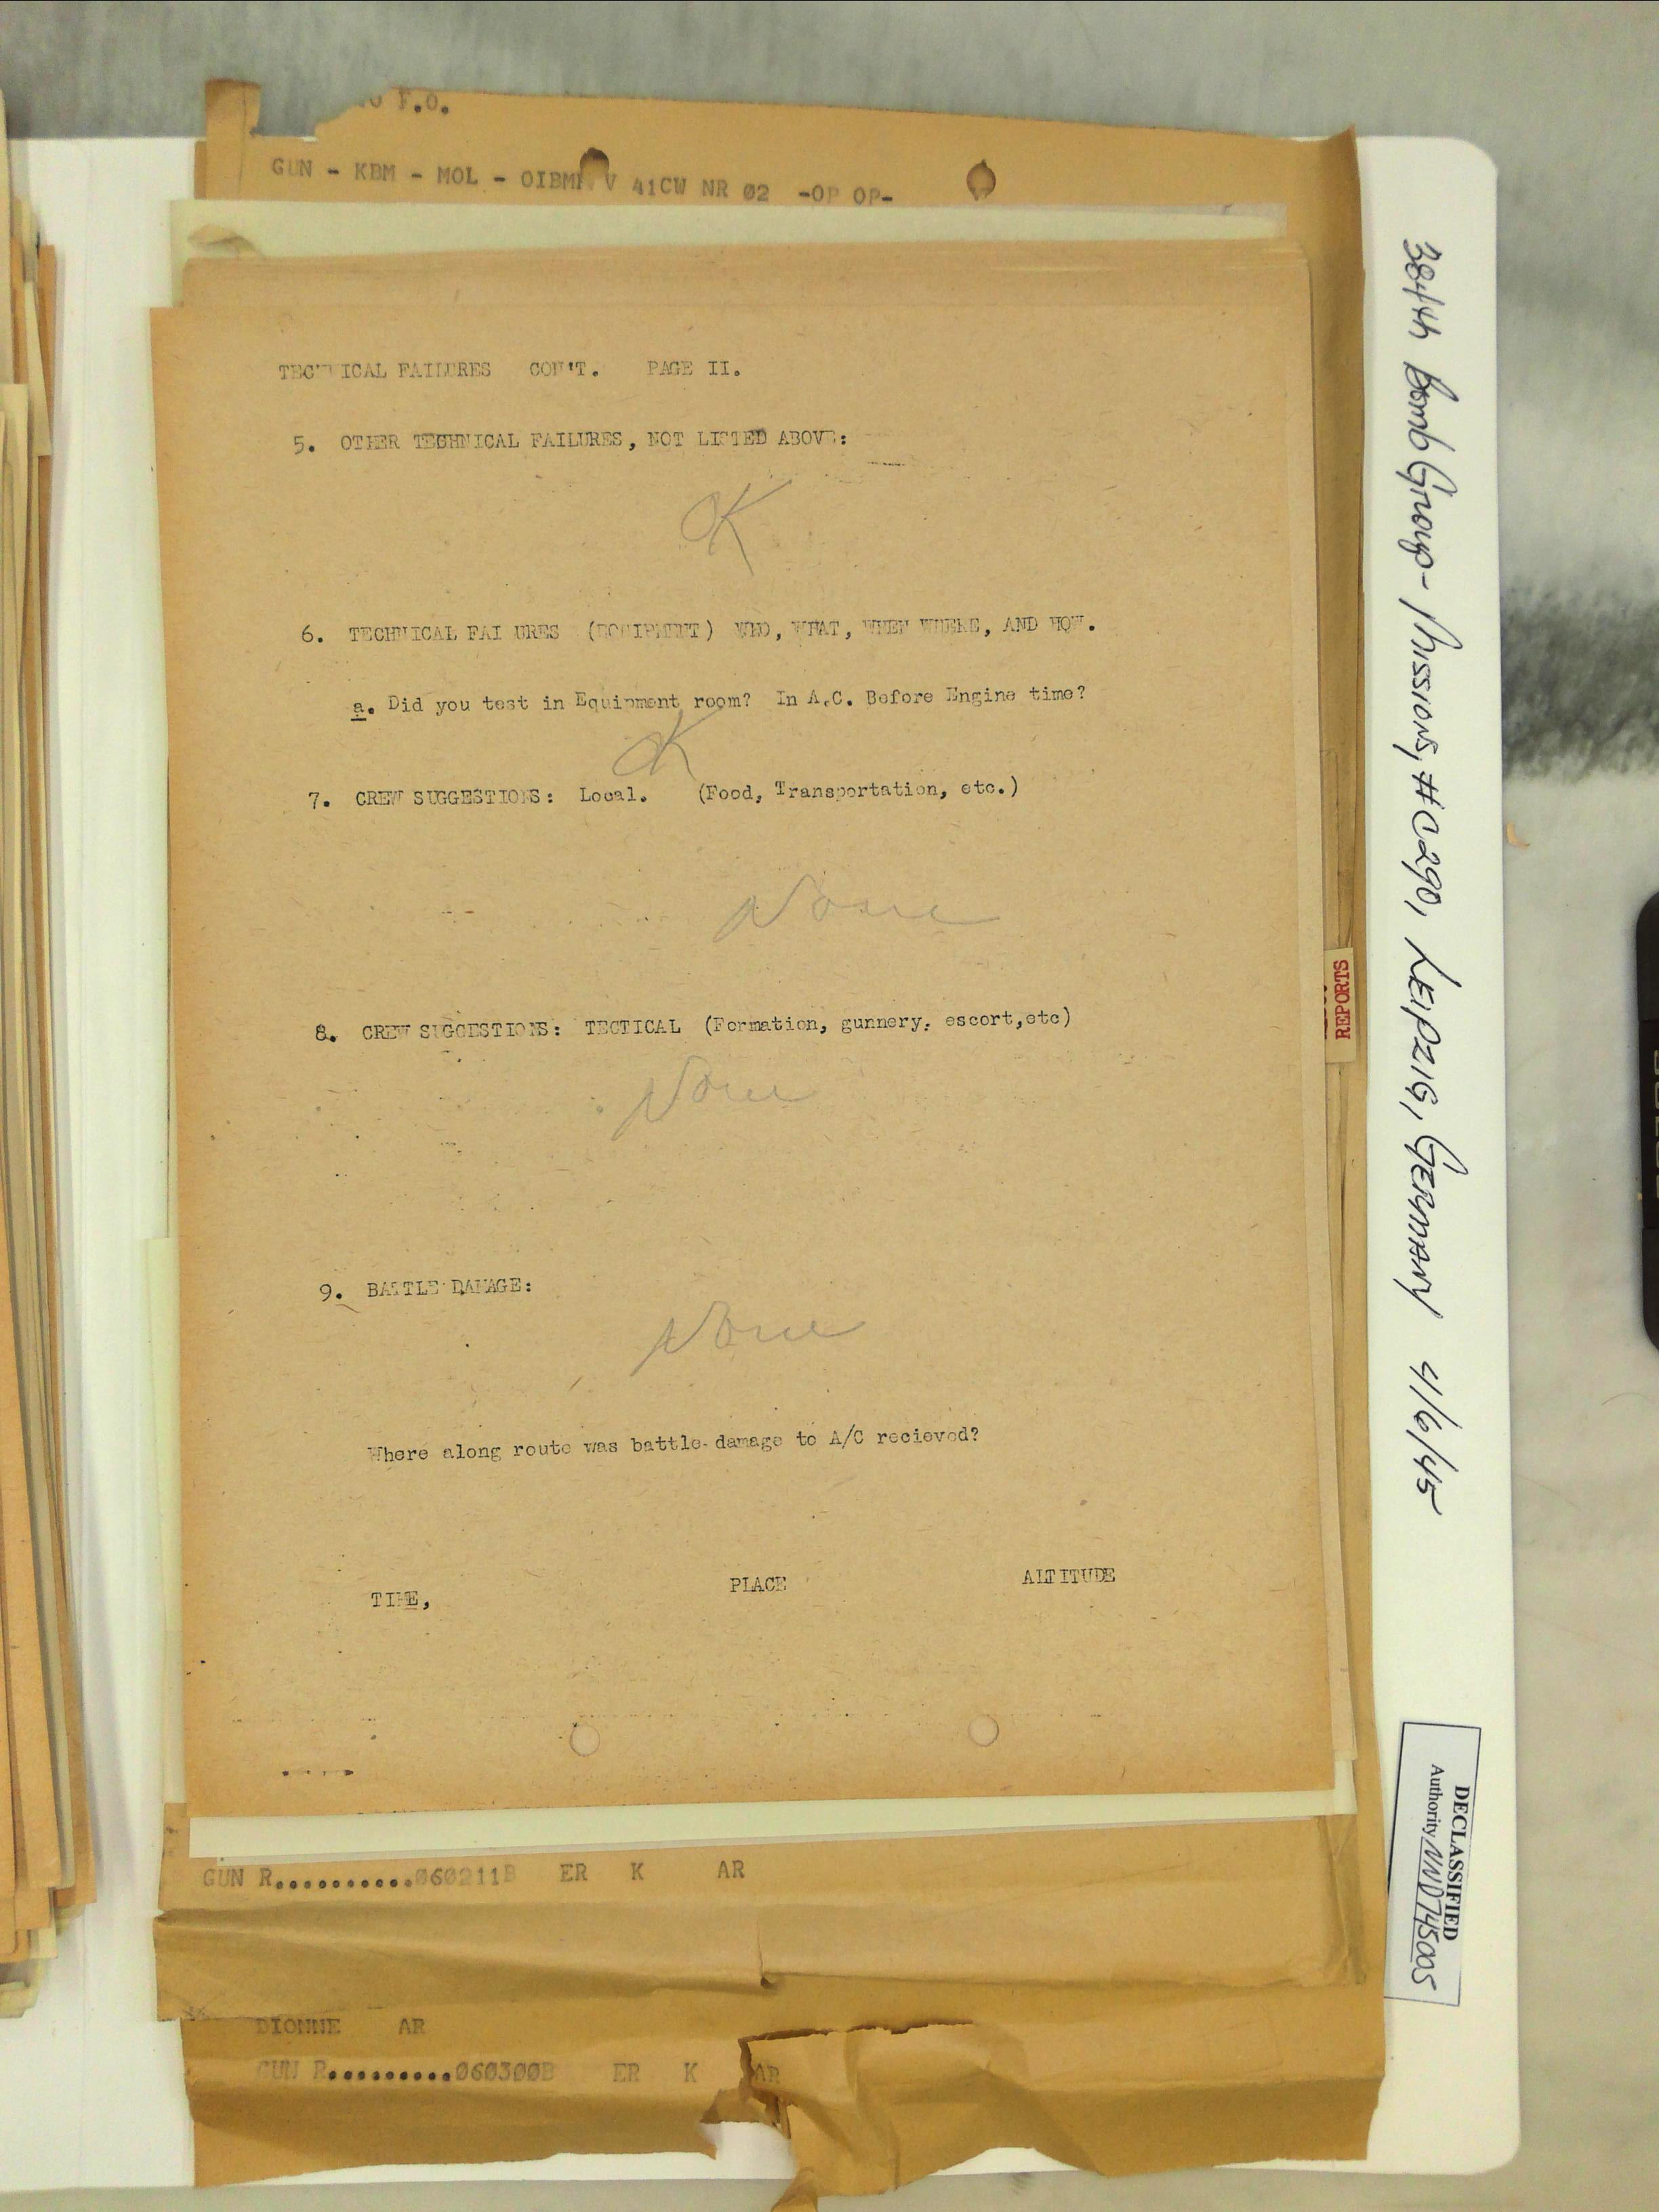 F.O.
GUN - KBM - MOL - OIBMK V 41CW NR 02 -OP OP-
TECHNICAL FAILURES CON'T. PAGE II.
5. OTHER TECHNICAL FAILURES, NOT LISTED ABOVE:
OK
6. TECHNICAL FAI URES (EQUIPMENT) WHO, WHAT, WHEN WHERE, AND HOW.
a. Did you test in Equipment room? In A.C. Before Engine time?
OK
7. CREW SUGGESTIONS: Local. (Food, Transportation, etc.)
None
8. CREW SUGGESTIONS: TECTICAL (Formation, gunnery, escort,etc)
None
9. BATTLE DAMAGE:
None
Where along route was battle damage to A/C recieved?
TIME, PLACE ALTITUDE
GUN R..........060211B ER K AR
DIONNE AR
GUN R.........060300B ER K AR
REPORTS
384th Bomb Group - Missions, #C290, LEIPZIG, GERMANY 4/6/45
DECLASSIFIED
Authority NND745005